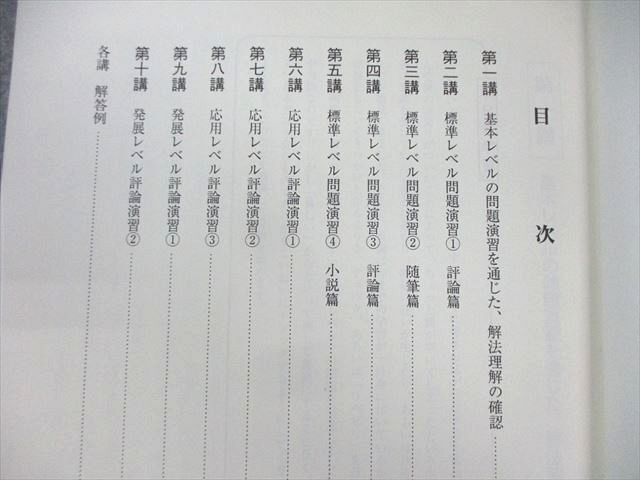 目次
第一講 基本レベルの問題演習を通じた、解法理解の確認
第二講 標準レベル問題演習① 評論篇
第三講 標準レベル問題演習② 随筆篇
第四講 標準レベル問題演習③ 評論篇
第五講 標準レベル問題演習④ 小説篇
第六講 応用レベル評論演習①
第七講 応用レベル評論演習②
第八講 応用レベル評論演習③
第九講 発展レベル評論演習①
第十講 発展レベル評論演習②
各講 解答例